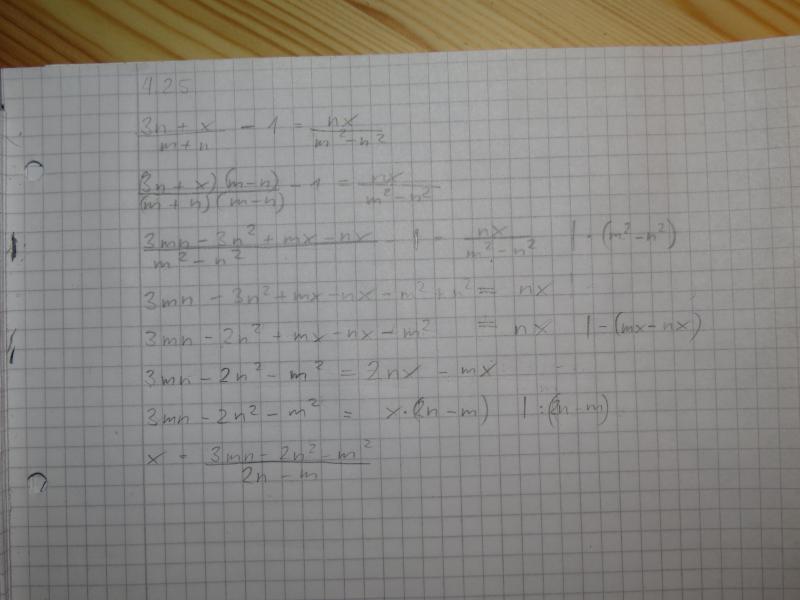 4.25
(3n + x)/(m + n) - 1 = nx/(m² - n²)
((3n + x)(m - n))/((m + n)(m - n)) - 1 = nx/(m² - n²)
(3mn - 3n² + mx - nx)/(m² - n²) - 1 = nx/(m² - n²) | · (m² - n²)
3mn - 3n² + mx - nx - m² + n² = nx |
3mn - 2n² + mx - nx - m² = nx | - (mx - nx)
3mn - 2n² - m² = 2nx - mx
3mn - 2n² - m² = x · (2n - m) | : (2n - m)
x = (3mn - 2n² - m²)/(2n - m)